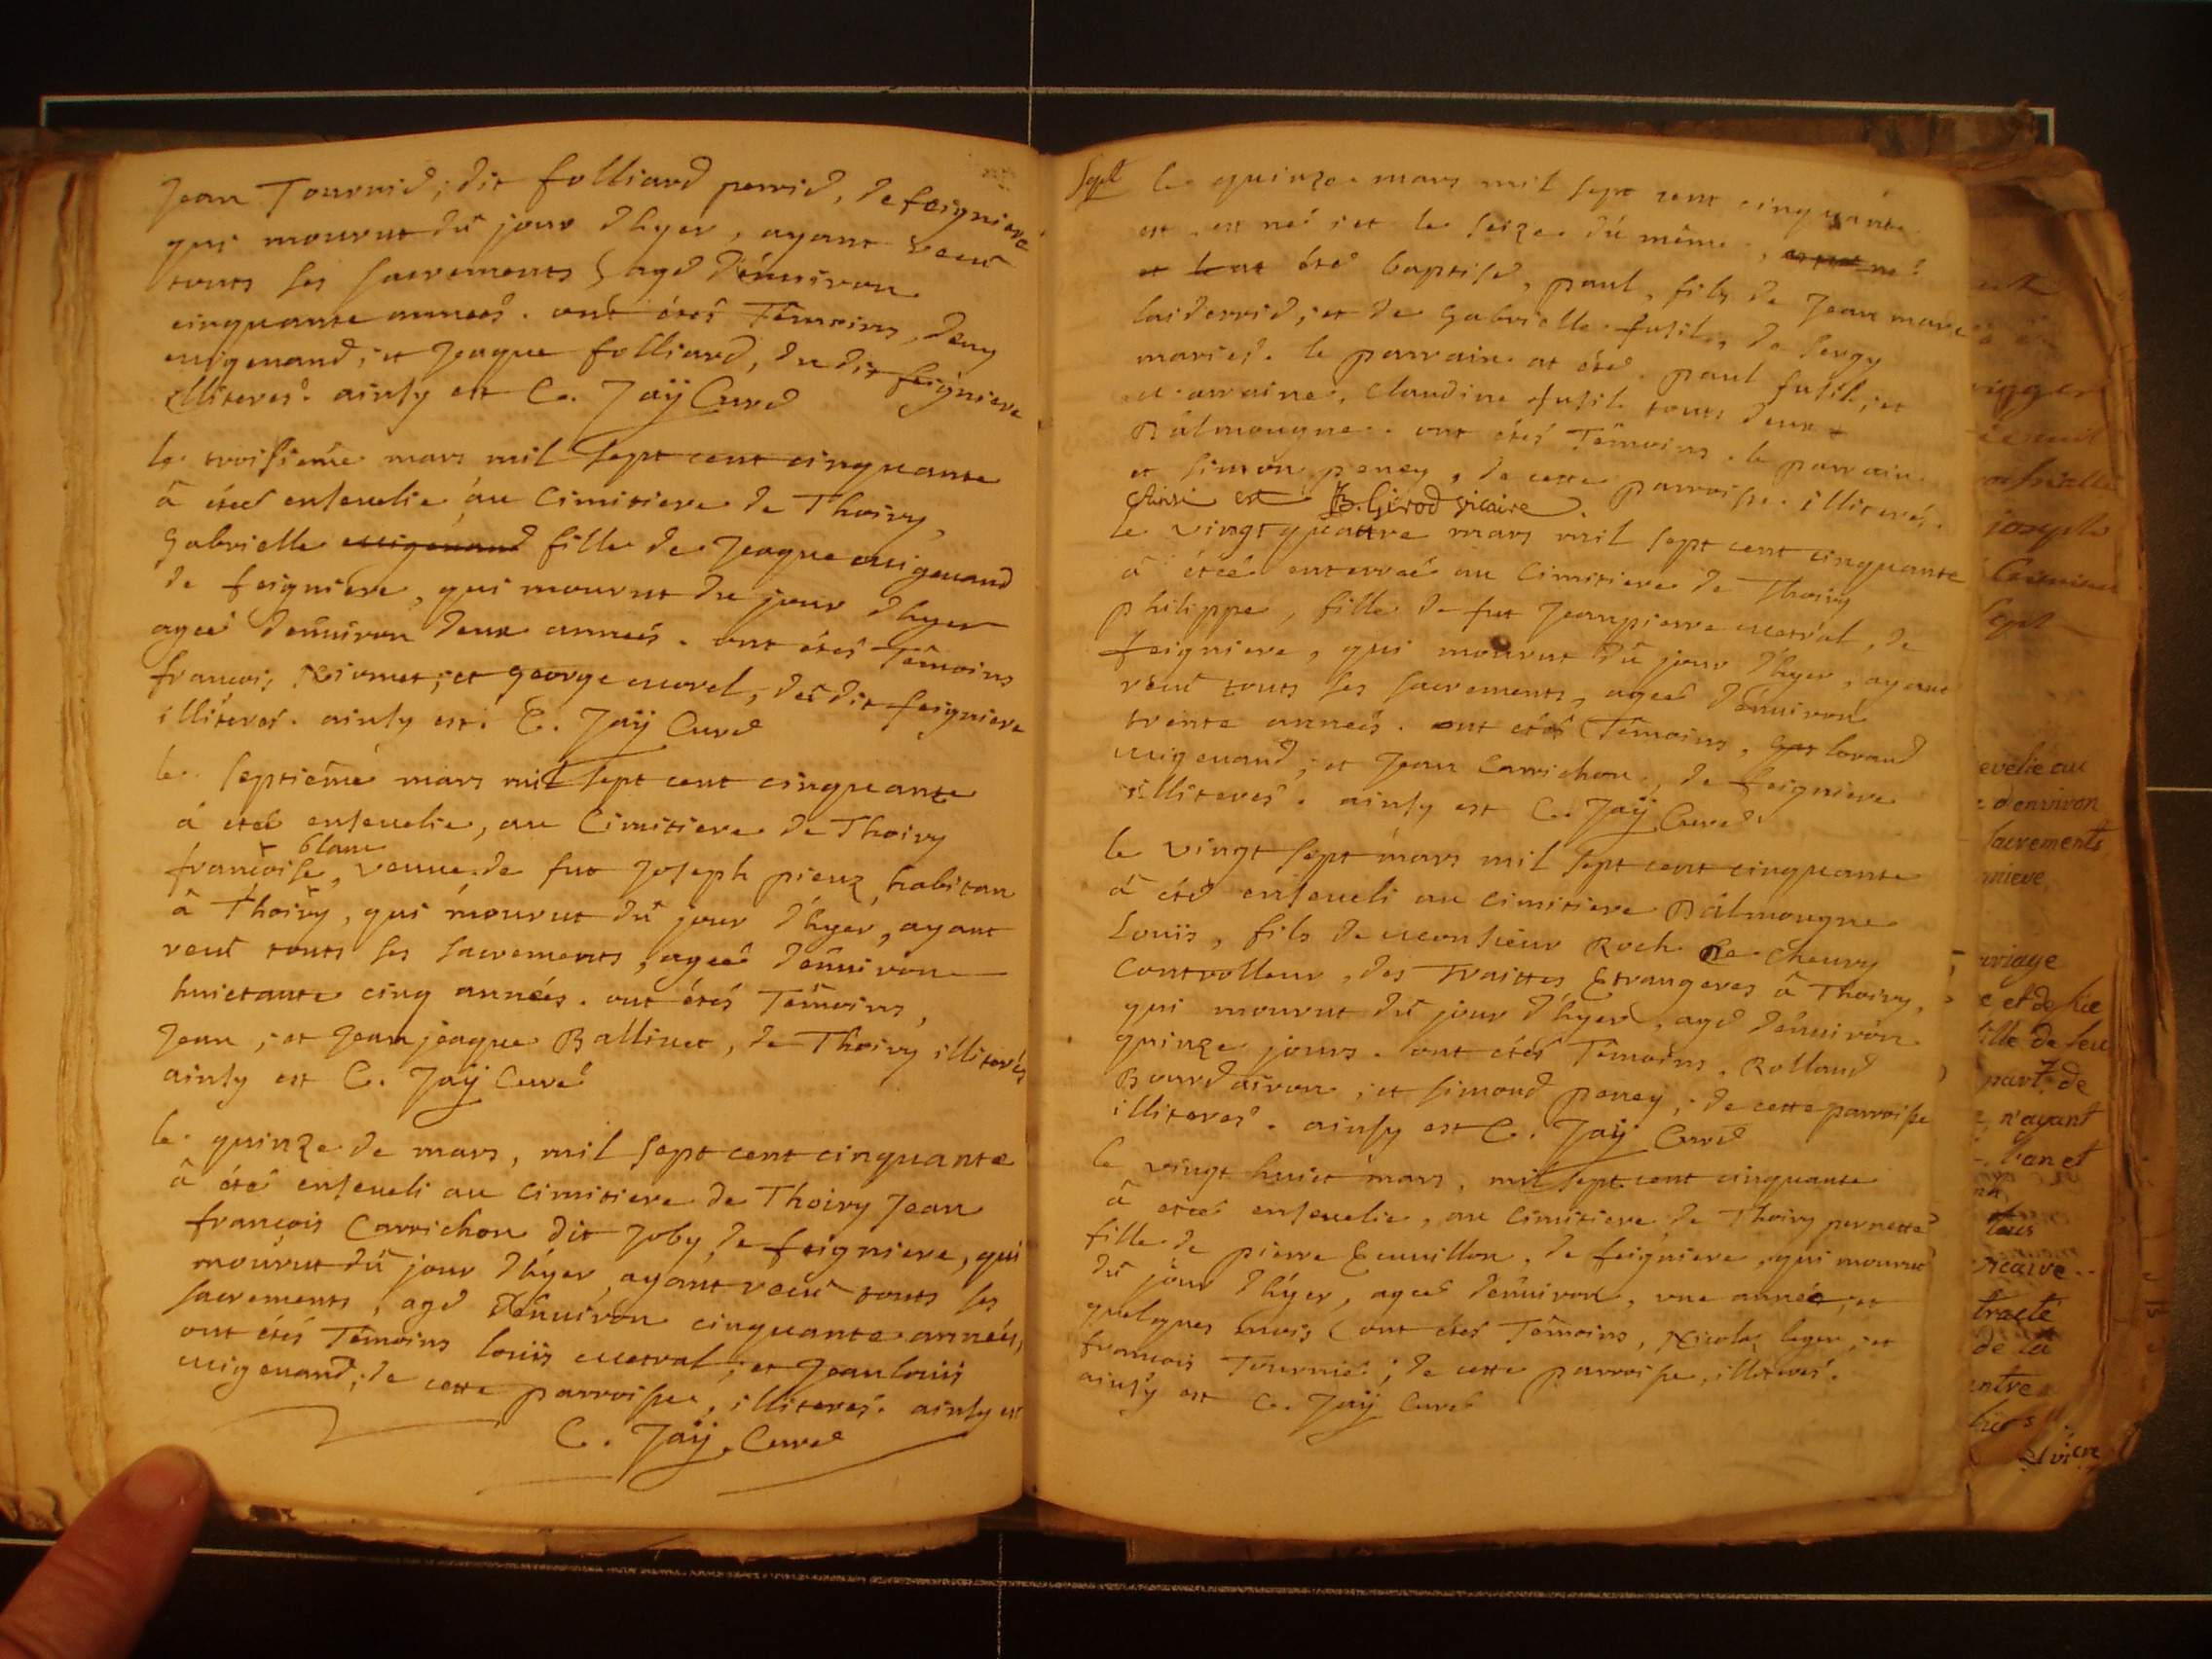 Jean Tournié; dit folliard perrid, de feigniere
qui mourut dû jour d'hyer, ayant reeut
touts les sacrements, agé d'énuiron
cinquante années. ont étés Témoins, deny
migenand; et Jeaque folliard, du dit feigniere
illiteres. ainsy est C. Jaÿ Curé
le troisieme mars mil sept cent cinquante
â étéé enseuelie au Cimitiere de Thoiry,
Gabrielle migenand fille de Jeaque migenand
de feigniere, qui mourut du jour d'hyer
ageé d'énuiron deux années. ont étés Témoins
francois, et george morel, du dit feigniere
illiterés. ainsy est. C. Jaÿ Curé
le septiéme mars mil sept cent cinquante
á étéé enseuelie, au Cimitiere de Thoiry
blanc
francoise, veuue de fut Joseph pieuz, habitan
â Thoiry, qui mourut dû jour d'hyer, ayant
reeut touts les sacrements, ageé d'énuiron
huictante cinq années. ont étés Témoins,
Jean; et Jean jeaque Ballivet, de Thoiry illiterés
ainsy est C. Jaÿ Curé
le quinze de mars, mil sept cent cinquante
â été enseueli au Cimitiere de Thoiry Jean
francois Carrichon dit Joby, de feigniere, qui
mourut dû jour d'hyer, ayant reeut touts les
sacrements, agé d'énuiron cinquante années,
ont étés Témoins louis metral; et Jean louis
migenand; de cette parroisse, illiterés. ainsy est
C. Jaÿ. Curé
Sept le quinze mars mil sept cent cinquante
est, est né; et le seize dú méme,
et le at été baptisé, paul, fils de Jean marc
laiderrid; et de Gabrielle fusil, de Sergy
mariés. le parrain at été. paul fusil; et
marraine, Claudine fusil touts deux
D'almougne. ont étés Témoins. le parrain
et simon peney, de cette parroisse. illiterés.
Ainsi est B. Girod vicaire.
le vingt quattre mars mil sept cent cinquante
â étéé enterreé au Cimitiere de Thoiry
philippe, fille de fut Jeanpierre metral, de
feigniere, qui mourut dû jour d'hyer, ayant
reeut touts les sacrements, ageé d'énuiron
trente années. ont étés Témoins, lorand
migenand; et Jean Carrichon, de feigniere
illiterés. ainsy est C. Jaÿ Curé
le vingt sept mars mil sept cent cinquante
â été enseueli au cimitiere D'almougne
Louis, fils de monsieur Roch De Cheury
Controlleur, des Traittes Etrangeres â Thoiry,
qui mourut dû jour d'hyer, agé d'énuiron
quinze jours. ont étés Témoins, Rolland
Bourdairon; et simond peney, de cette parroisse
illiterés. ainsy est C. Jaÿ Curé
le vingt huict mars, mil sept cent cinquante
â étéé enseuelie, au Cimitiere de Thoiry pernette
fille de pierre Ecuuillon, de feigniere, qui mourut
dû jour d'hyer, ageé d'énuiron, vne année, et
quelques mois, ont étés Témoins, Nicolas leger; et
francois Tournié; de cette parroisse, illiterés.
ainsy est C. Jaÿ Curé
joseph
Sept
evelie au
d'environ
Sacrements
uriage
ille de feu
part de
n'ayant
vicaire
tracté
de la
entre